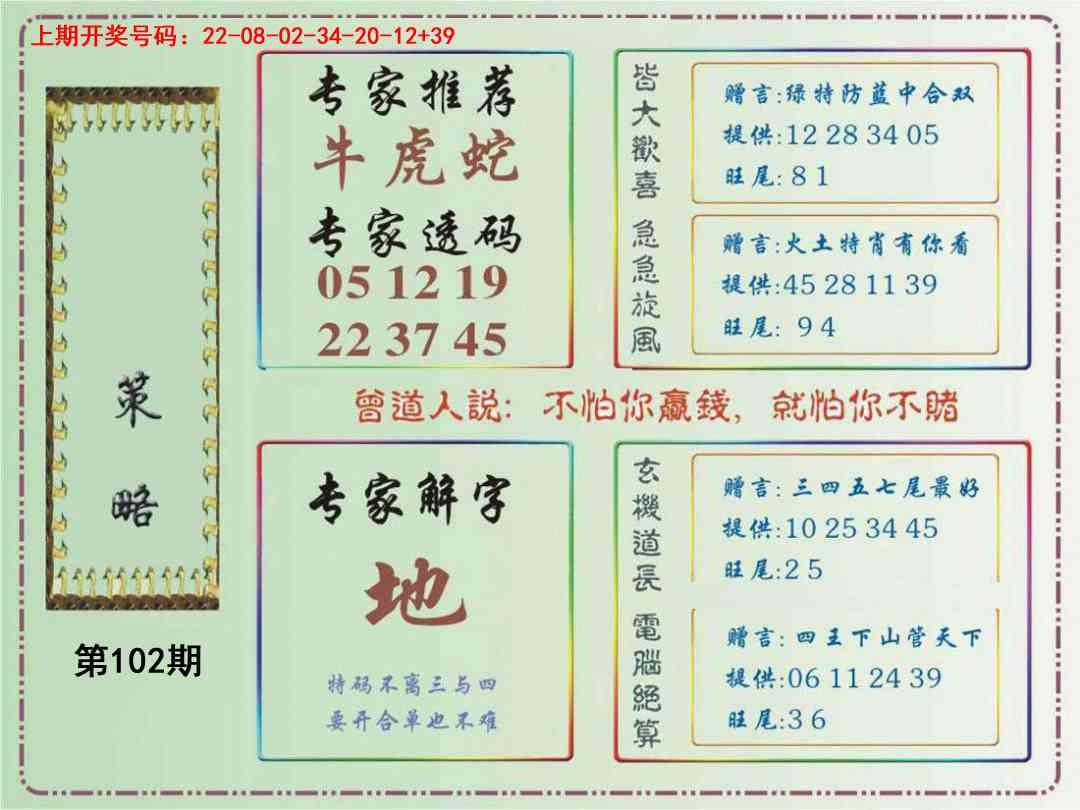 上期开奖号码：22-08-02-34-20-12+39
策略
第102期
专家推荐
牛虎蛇
专家透码
05 12 19
22 37 45
皆大歡喜
赠言:绿特防蓝中合双
提供:12 28 34 05
旺尾: 8 1
急急旋風
赠言:火土特肖有你看
提供:45 28 11 39
旺尾: 9 4
曾道人説: 不怕你贏錢, 就怕你不賭
专家解字
地
特码不离三与四
要开合单也不难
玄機道長
赠言: 三四五七尾最好
提供:10 25 34 45
旺尾:2 5
電腦絕算
赠言: 四王下山管天下
提供:06 11 24 39
旺尾:3 6